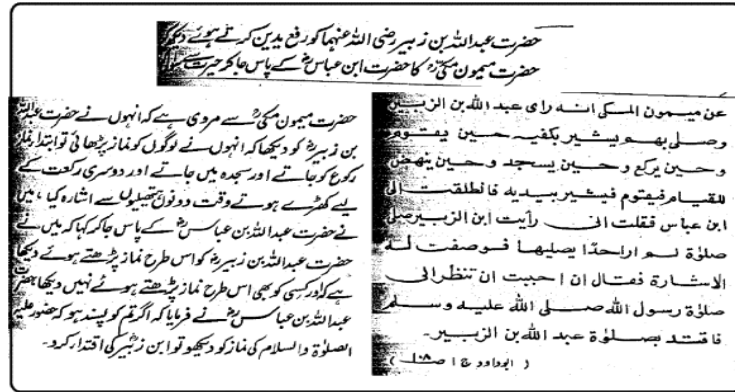 حضرت عبداللہ بن زبیر رضی اللہ عنہما کو رفع یدین کرتے ہوئے دیکھ کر
حضرت میمون مکیؒ کا حضرت ابن عباسؓ کے پاس جا کر حیرت سے سوال
عن میمون المکی انه رای عبد الله بن الزبیر
وصلی بهم یشیر بکفیه حین یقوم
و حین یرکع و حین یسجد و حین ینهض
للقیام فیقوم فیشیر بیدیه فانطلقت الی
ابن عباس فقلت انی رأیت ابن الزبیر صلی
صلوٰة لم ار احدًا یصلیها فوصفت له
الاشارة فقال ان احببت ان تنظر الی
صلوٰة رسول الله صلی الله علیه وسلم
فاقتد بصلوٰة عبد الله بن الزبیر۔
(ابوداود ج ۱ ص ۱۰۸)
حضرت میمون مکیؒ سے مروی ہے کہ انہوں نے حضرت عبداللہ
بن زبیرؓ کو دیکھا کہ انہوں نے لوگوں کو نماز پڑھائی تو ابتداء نماز
رکوع کو جاتے اور سجدہ میں جاتے اور دوسری رکعت کے
لیے کھڑے ہوتے وقت دونوں ہتھیلیوں سے اشارہ کیا، میں
نے حضرت عبداللہ بن عباسؓ کے پاس جا کر کہا کہ میں نے
حضرت عبداللہ بن زبیرؓ کو اس طرح نماز پڑھتے ہوئے دیکھا
ہے کہ اور کسی کو بھی اس طرح نماز پڑھتے ہوئے نہیں دیکھا حضرت
عبداللہ بن عباسؓ نے فرمایا کہ اگر تم کو پسند ہو کہ حضور علیہ
الصلوٰة والسلام کی نماز کو دیکھو تو ابن زبیرؓ کی اقتدار کرو۔